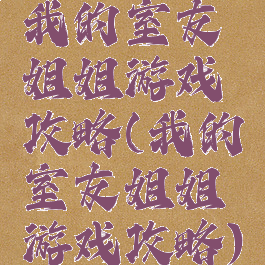 我的室友
姐姐游戏
攻略(我的
室友姐姐
游戏攻略)